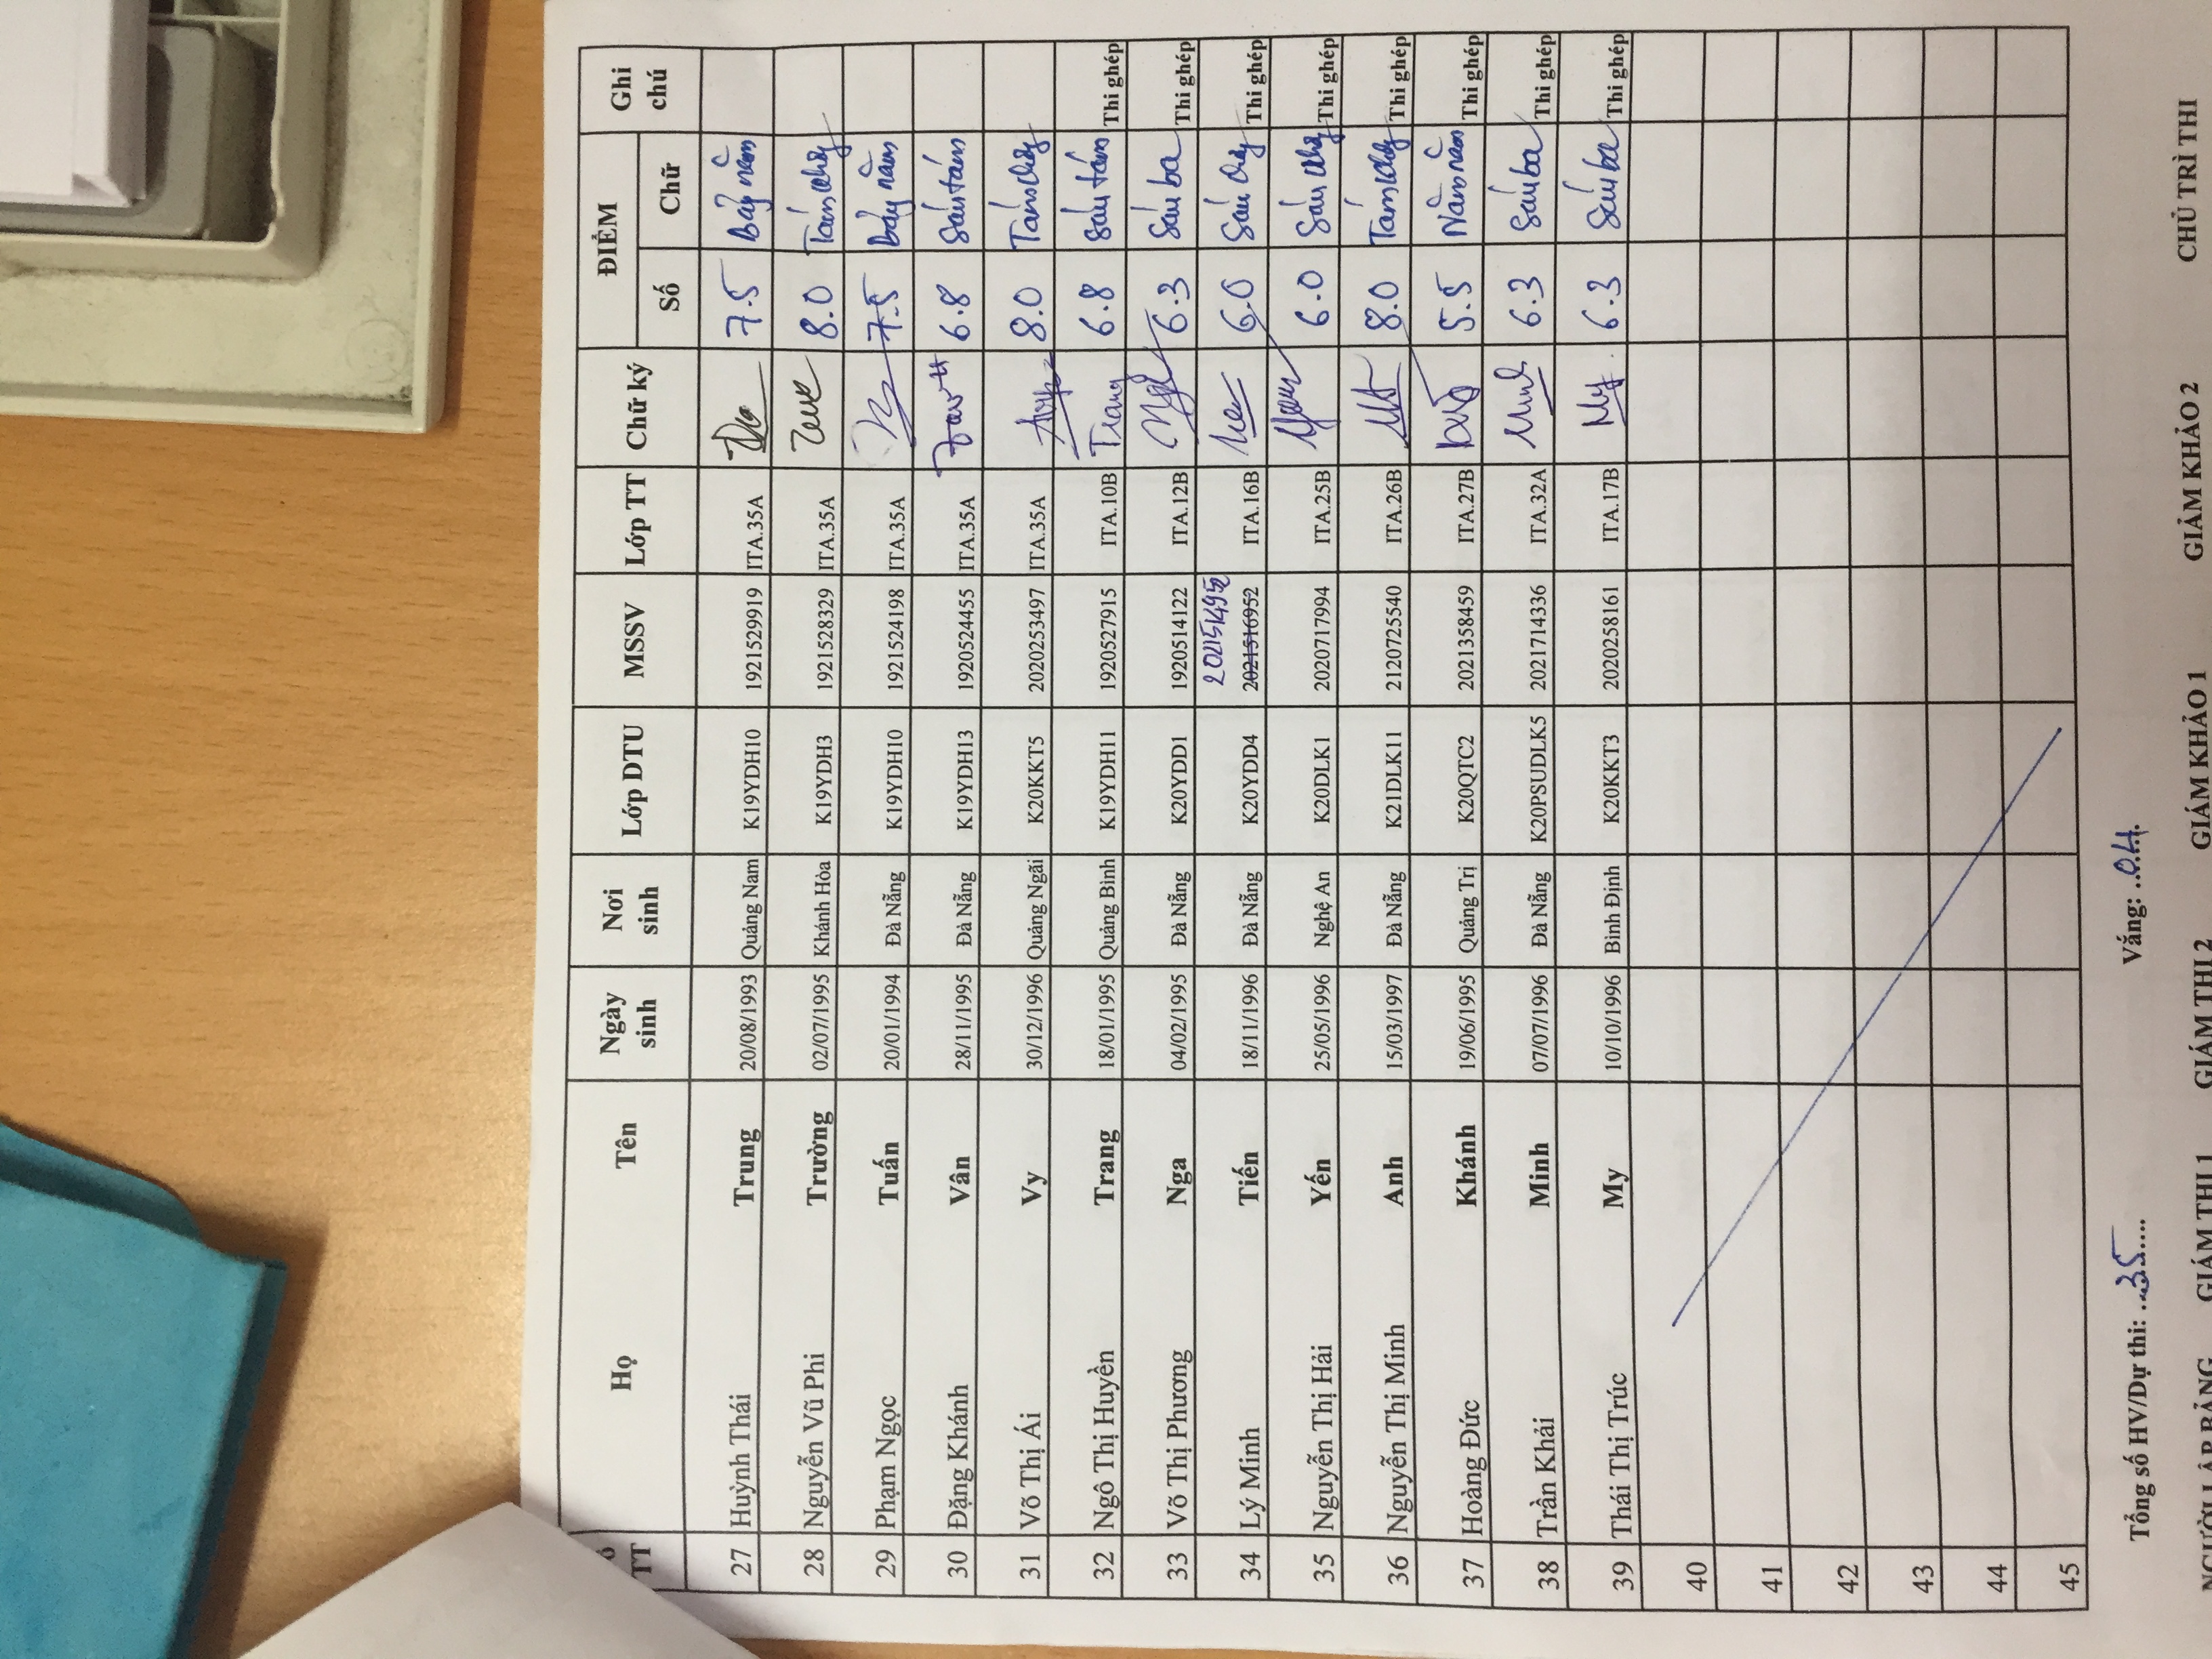 TT Họ Tên Ngày sinh Nơi sinh Lớp DTU MSSV Lớp TT Chữ ký ĐIỂM Số Chữ Ghi chú
27 Huỳnh Thái Trung 20/08/1993 Quảng Nam K19YDH10 1921529919 ITA.35A 7.5 Bảy năm
28 Nguyễn Vũ Phi Trường 02/07/1995 Khánh Hòa K19YDH3 1921528329 ITA.35A 8.0 Tám chẵn
29 Phạm Ngọc Tuấn 20/01/1994 Đà Nẵng K19YDH10 1921524198 ITA.35A 7.5 Bảy năm
30 Đặng Khánh Vân 28/11/1995 Đà Nẵng K19YDH13 1920524455 ITA.35A 6.8 Sáu tám
31 Võ Thị Ái Vy 30/12/1996 Quảng Ngãi K20KKT5 2020253497 ITA.35A 8.0 Tám chẵn
32 Ngô Thị Huyền Trang 18/01/1995 Quảng Bình K19YDH11 1920527915 ITA.10B Trang 6.8 Sáu tám Thi ghép
33 Võ Thị Phương Nga 04/02/1995 Đà Nẵng K20YDD1 1920514122 ITA.12B 6.3 Sáu ba Thi ghép
34 Lý Minh Tiến 18/11/1996 Đà Nẵng K20YDD4 2021516952 ITA.16B 6.0 Sáu chẵn Thi ghép
35 Nguyễn Thị Hải Yến 25/05/1996 Nghệ An K20DLK1 2020717994 ITA.25B 6.0 Sáu chẵn Thi ghép
36 Nguyễn Thị Minh Anh 15/03/1997 Đà Nẵng K21DLK11 2120725540 ITA.26B 8.0 Tám chẵn Thi ghép
37 Hoàng Đức Khánh 19/06/1995 Quảng Trị K20QTC2 2021358459 ITA.27B 5.5 Năm năm Thi ghép
38 Trần Khải Minh 07/07/1996 Đà Nẵng K20PSUDLK5 2021714336 ITA.32A Minh 6.3 Sáu ba Thi ghép
39 Thái Thị Trúc My 10/10/1996 Bình Định K20KKT3 2020258161 ITA.17B My 6.3 Sáu ba Thi ghép
40
41
42
43
44
45
Tổng số HV/Dự thi: ..35.... Vắng: ..04..
NGƯỜI LẬP BẢNG GIÁM THỊ 1 GIÁM THỊ 2 GIÁM KHẢO 1 GIÁM KHẢO 2 CHỦ TRÌ THI